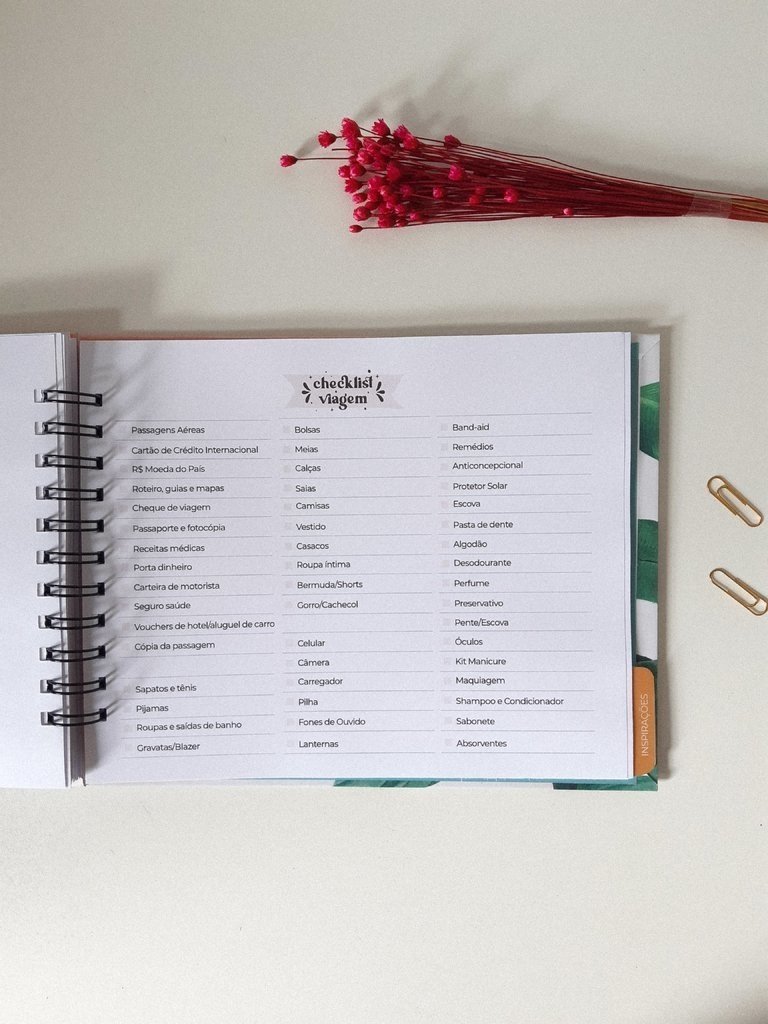 checklist
viagem
Passagens Aéreas
Cartão de Crédito Internacional
R$ Moeda do País
Roteiro, guias e mapas
Cheque de viagem
Passaporte e fotocópia
Receitas médicas
Porta dinheiro
Carteira de motorista
Seguro saúde
Vouchers de hotel/aluguel de carro
Cópia da passagem
Sapatos e tênis
Pijamas
Roupas e saídas de banho
Gravatas/Blazer
Bolsas
Meias
Calças
Saias
Camisas
Vestido
Casacos
Roupa íntima
Bermuda/Shorts
Gorro/Cachecol
Celular
Câmera
Carregador
Pilha
Fones de Ouvido
Lanternas
Band-aid
Remédios
Anticoncepcional
Protetor Solar
Escova
Pasta de dente
Algodão
Desodourante
Perfume
Preservativo
Pente/Escova
Óculos
Kit Manicure
Maquiagem
Shampoo e Condicionador
Sabonete
Absorventes
INSPIRAÇÕES